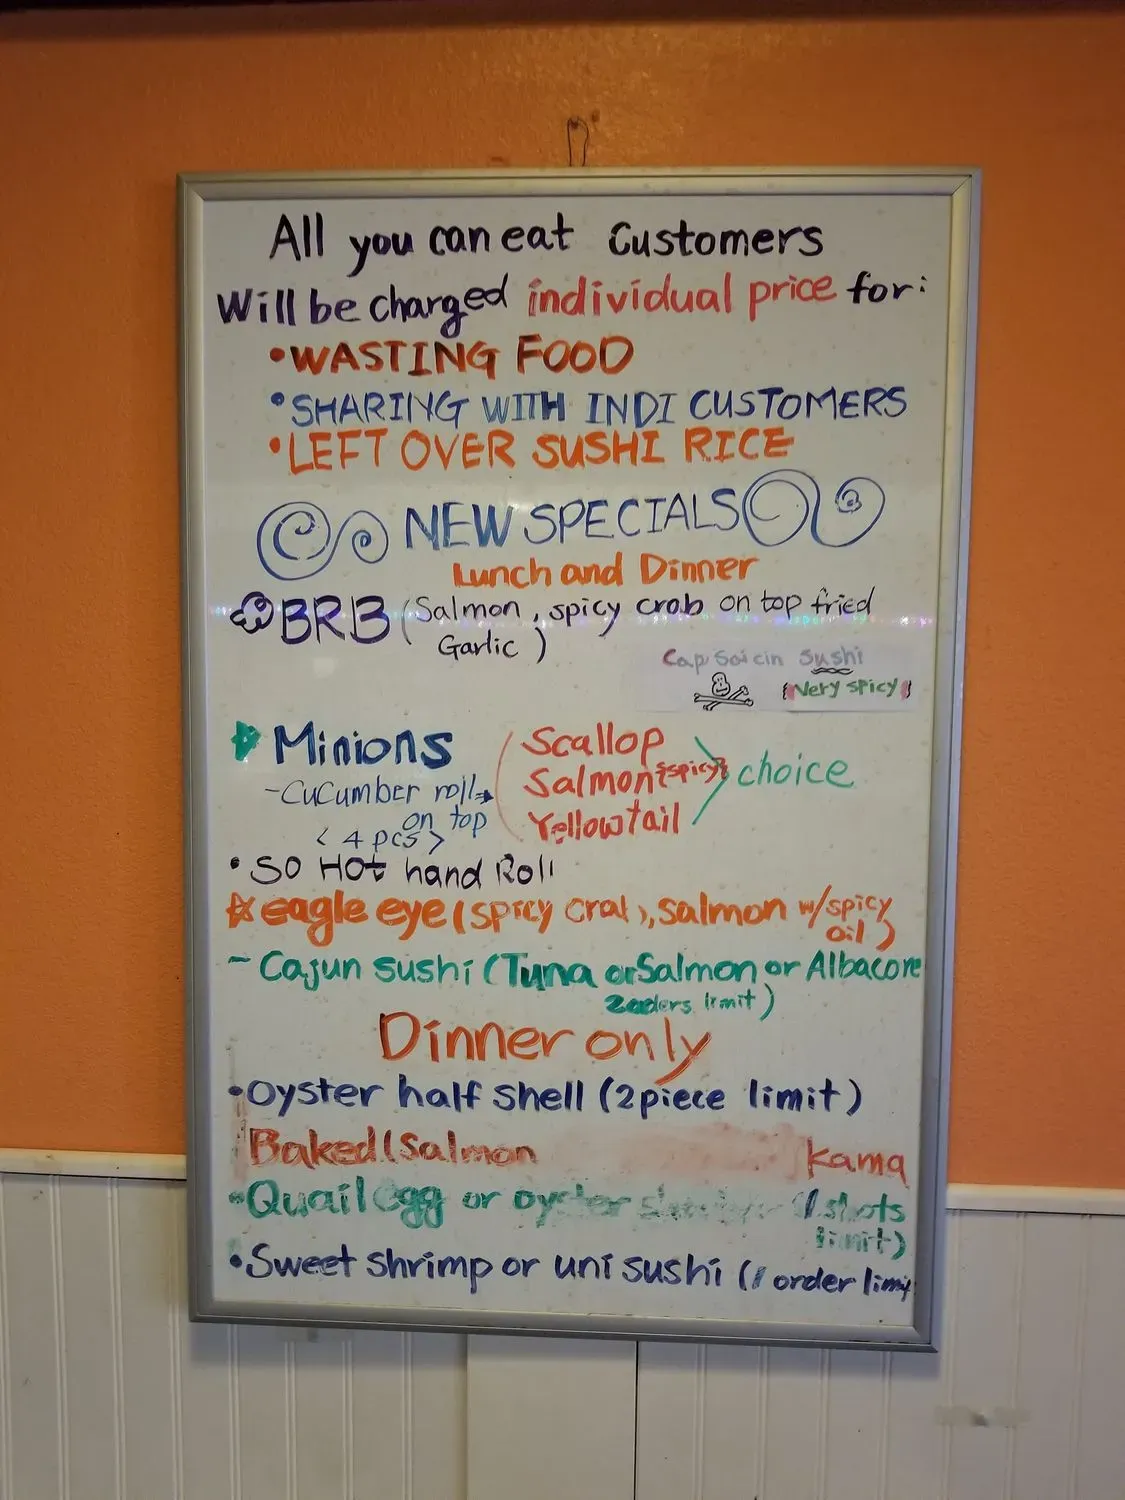 All you can eat Customers
Will be charged individual price for:
•WASTING FOOD
•SHARING WITH INDI CUSTOMERS
•LEFT OVER SUSHI RICE
NEW SPECIALS
Lunch and Dinner
BRB (Salmon, spicy crab on top fried
Garlic)
Capsaicin Sushi
Very spicy
Minions
-Cucumber roll
on top
< 4 pcs >
Scallop
Salmon {spicy}
Yellowtail
choice
• SO HOt hand Roll
eagle eye (spicy crab), salmon w/spicy
oil)
- Cajun sushi (Tuna or Salmon or Albacore
2 orders limit)
Dinner only
•Oyster half shell (2piece limit)
Baked (Salmon kama
•Quail egg or oyster shots
limit)
•Sweet shrimp or uni sushi (1 order limit